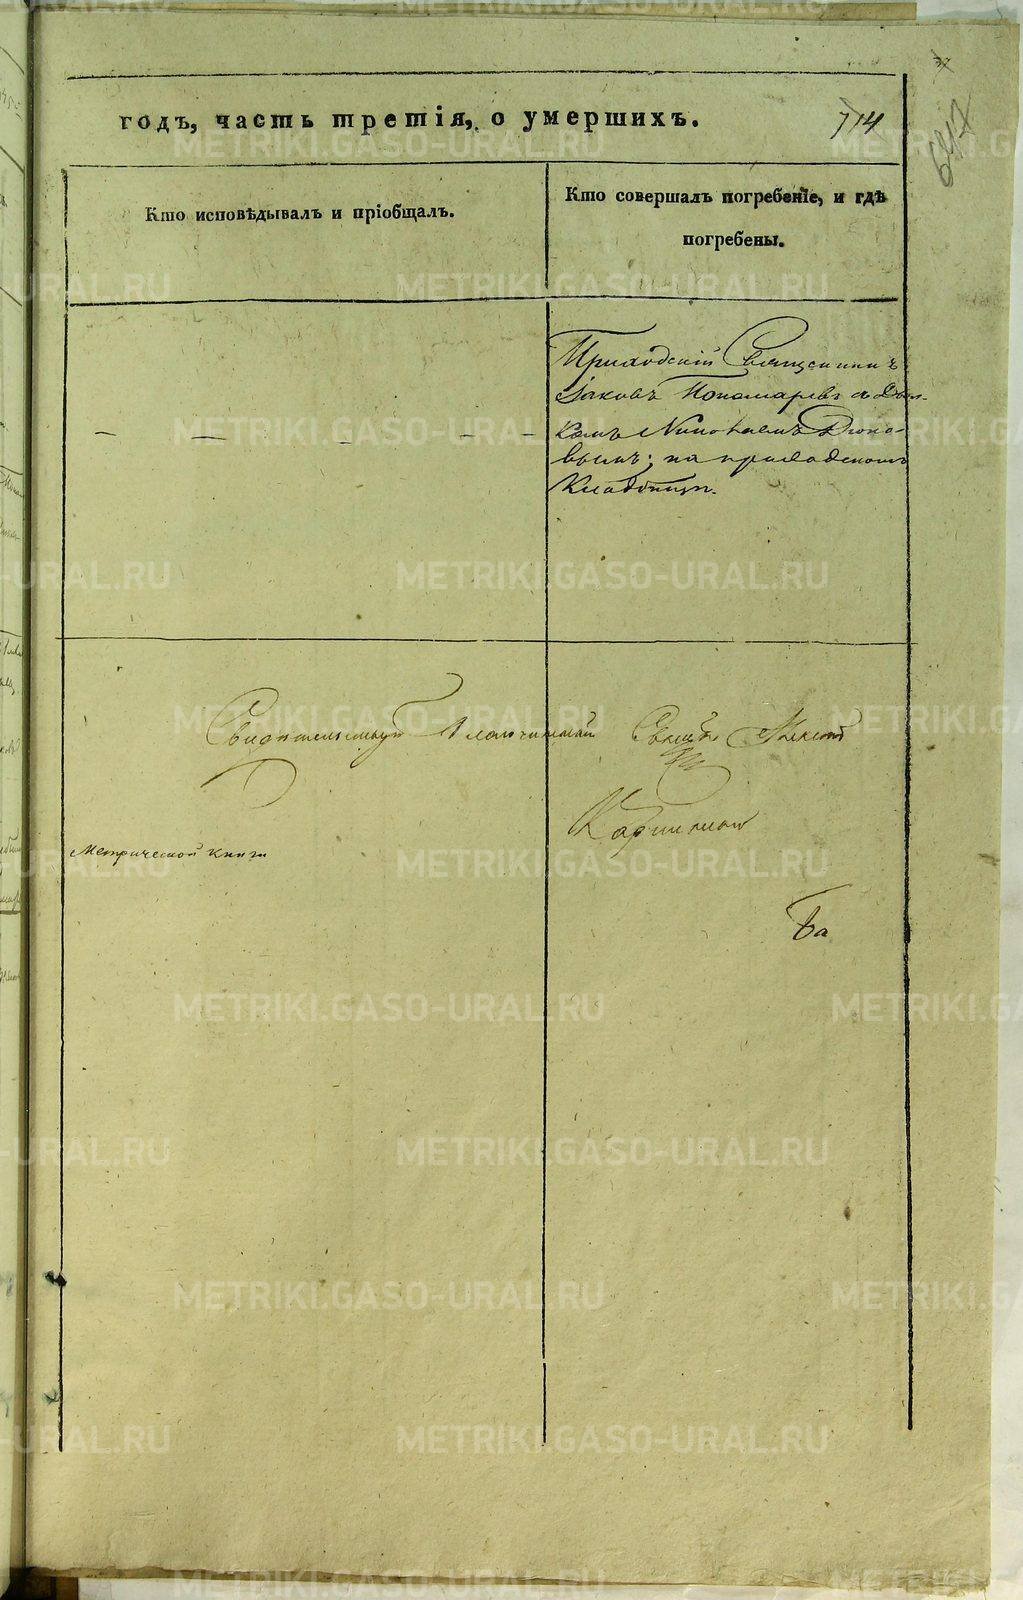 годъ, часть третія, о умершихъ.
714
647
Кто исповѣдывалъ и пріобщалъ.
Кто совершалъ погребеніе, и гдѣ
погребены.
Приходскій Священникъ
Іаковъ Пономаревъ съ Дьяч-
комъ Николаемъ
вымъ; на приходскомъ
Кладбищѣ.
Свидѣтельствуетъ Благочинный Алексѣй
Метрической книги
METRIKI.GASO-URAL.RU